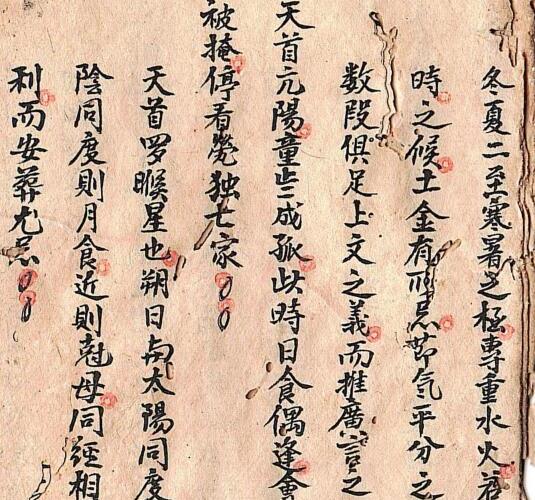 冬夏二至寒暑之極專重水火
時之候土金有所忌節气平分之
数段俱足上文之義而推廣言之
天首亢陽童成孤此時日食偶逢會
被掩停看煢独亡家
天首罗睺星也朔日与太陽同度
陰同度則月食近則尅母同經相
利而安葬尤忌